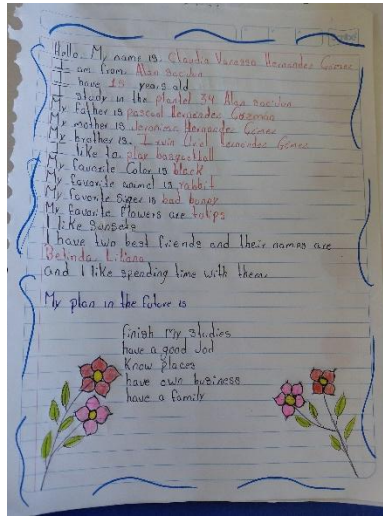 Hello. My name is. Claudia Vanessa Hernandez Gomez
I am from Alan sacjun
I have 18 years old
I study in the plantel 34 Alan sacjun
My father is pascual Hernandez Guzman
My mother is Jeronima Hernandez Gomez
My brother is. Irvin Uriel Hernandez Gomez
I like to. play basquetball
My favorite Color is black
My favorite animal is rabbit
My favorite singer is bad bunny
My favorite flowers are tolips
I like sunsets
I have two best friends and their names are
Belinda, Liliana
and I like spending time with them.
My plan in the future is
finish my studies
have a good Job
Know places
have own business
have a family